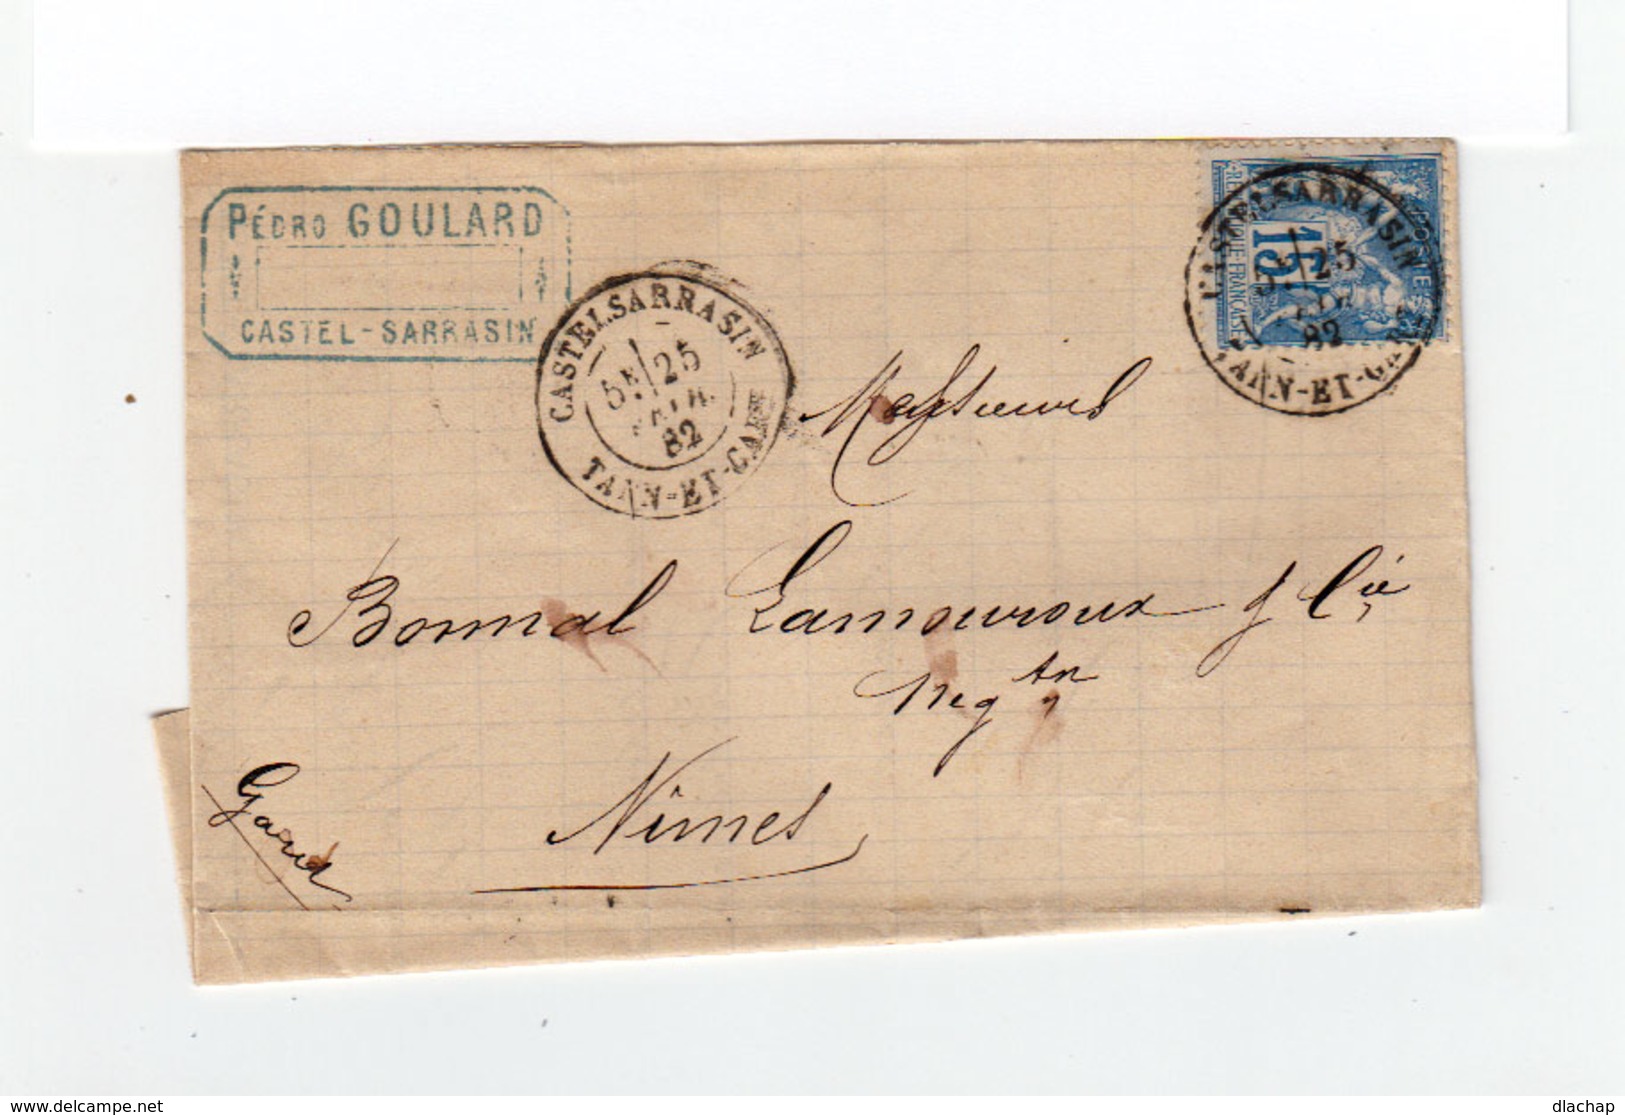 PÉDRO GOULARD
CASTEL-SARRASIN
CASTELSARRASIN
5E 25
82
TARN-ET-GAR
POSTES
REPUBLIQUE FRANÇAISE
15
CASTELSARRASIN
5E 25
82
TARN-ET-GAR
Messieurs
Bonnal Lamouroux & Cie
Negtn
Nîmes
Gard
www.delcampe.net
dlachap